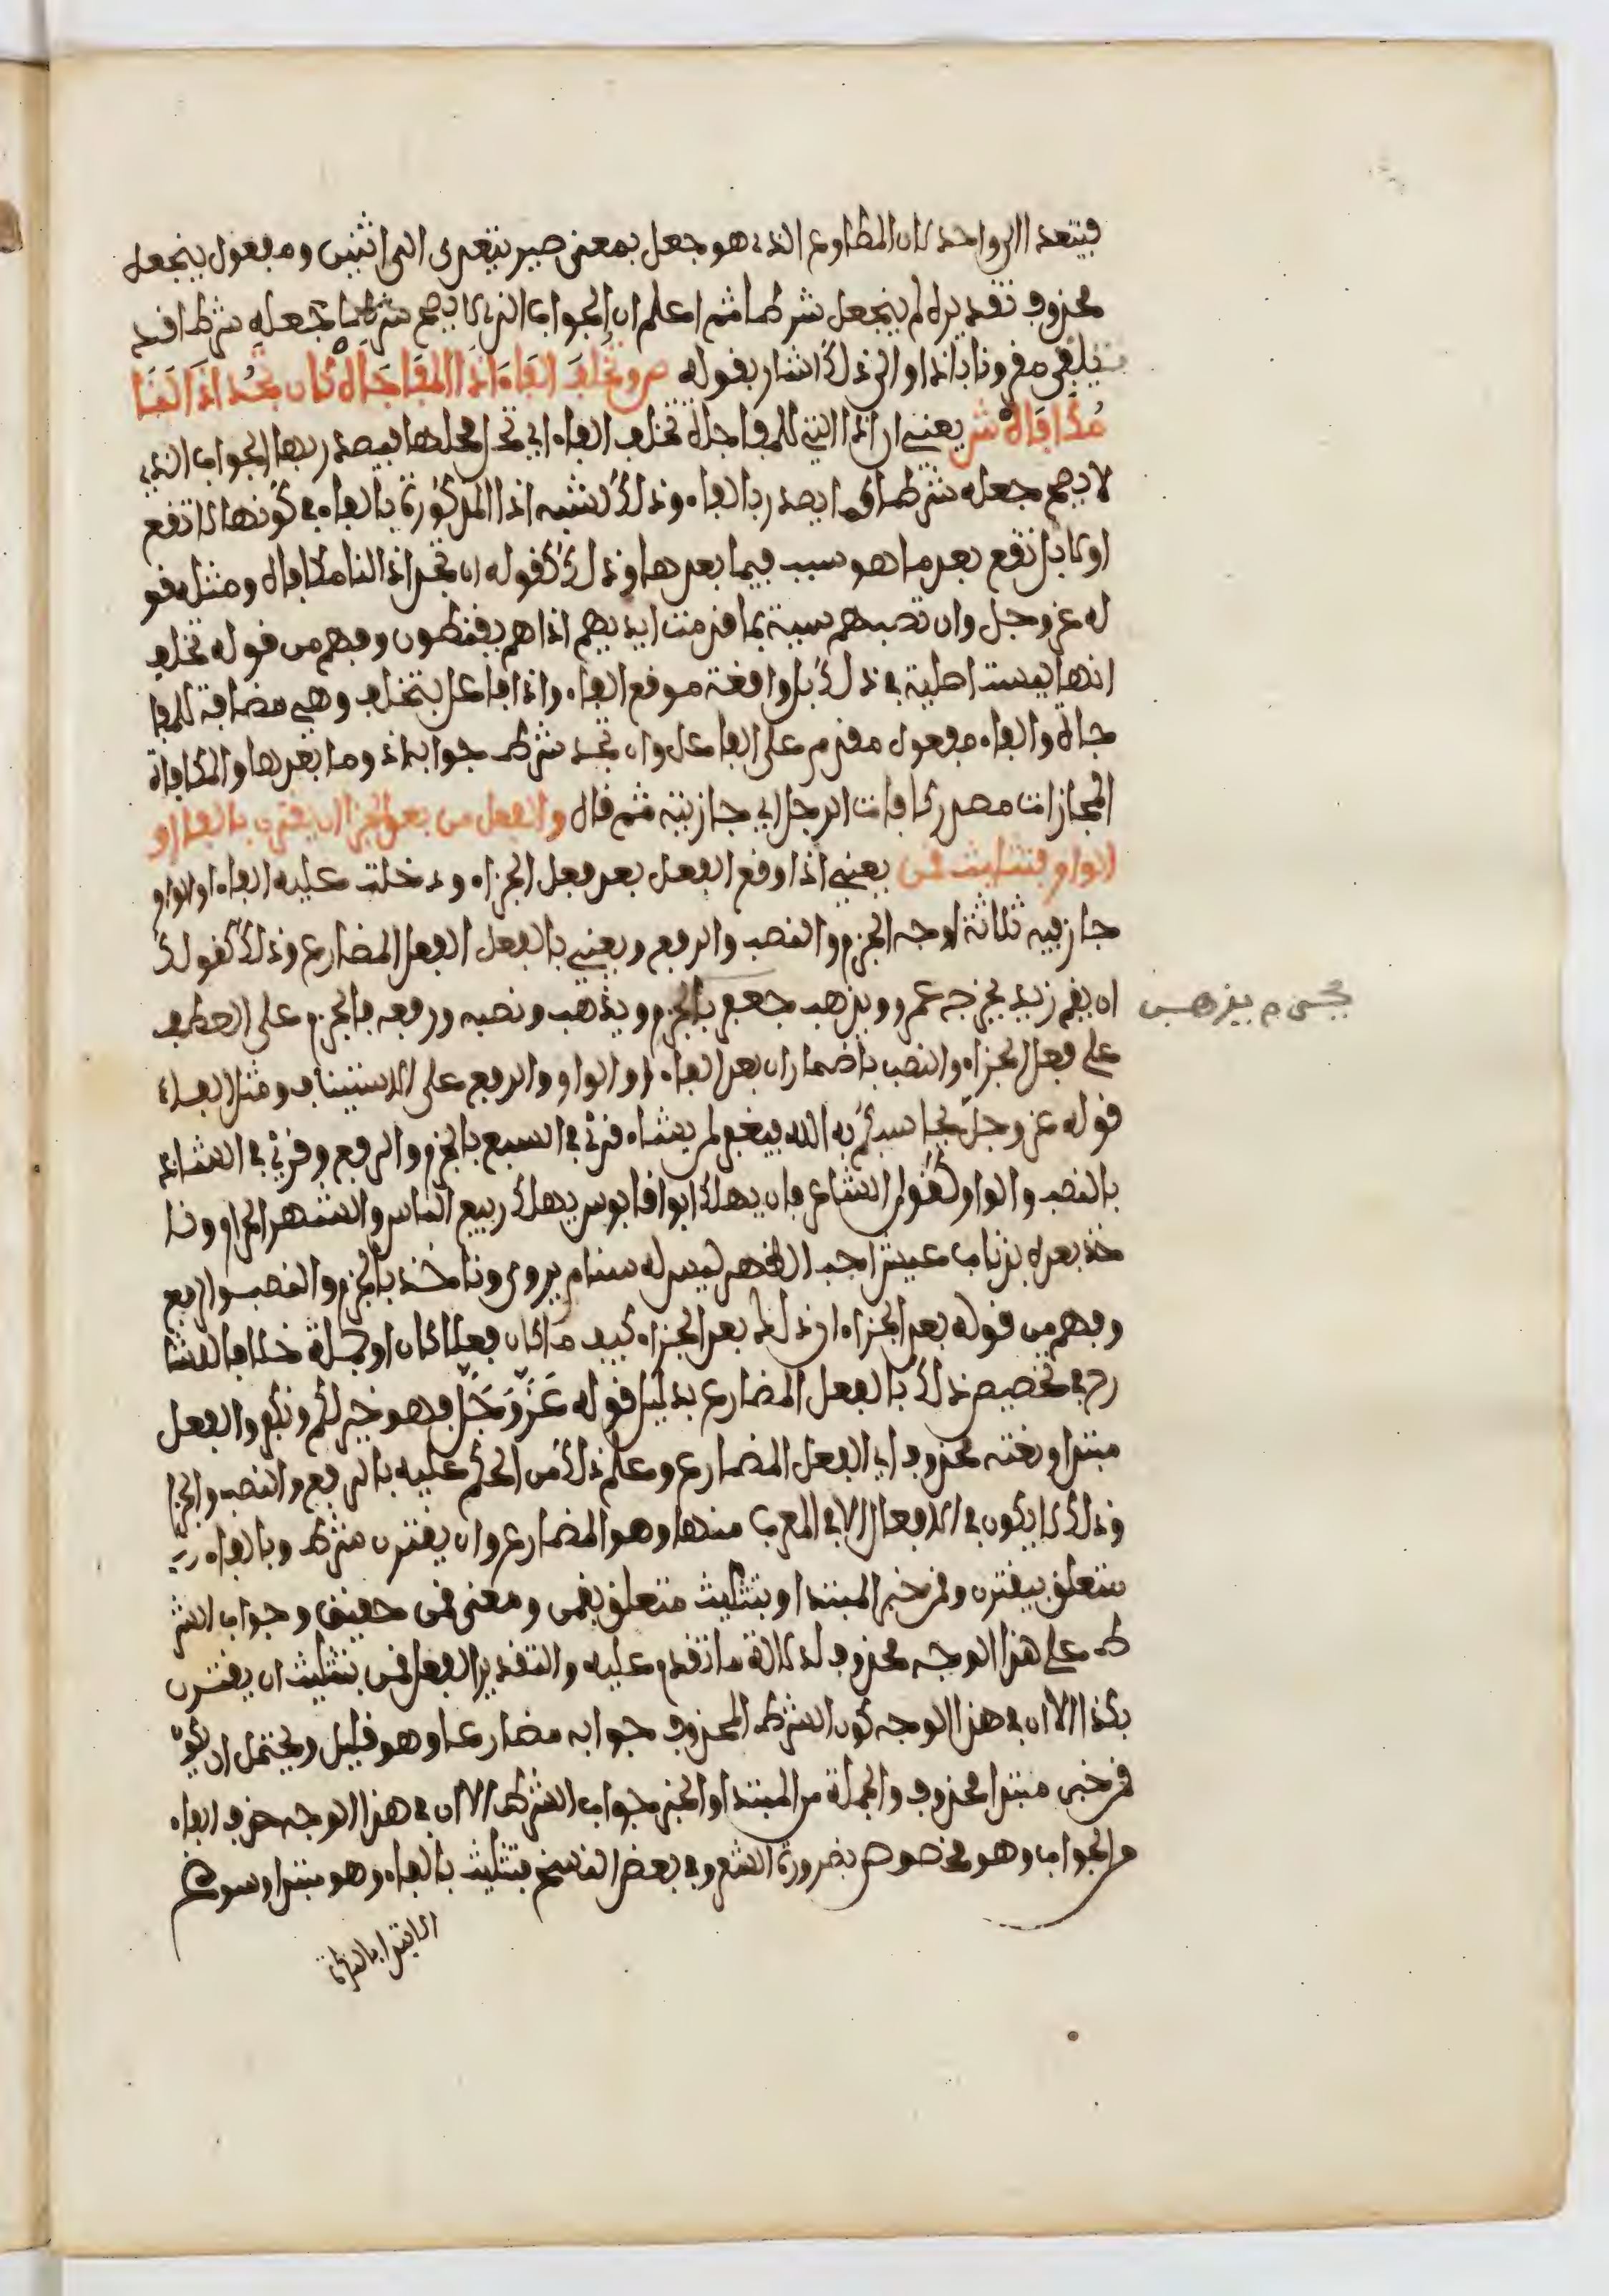 فيتعدا الى واحد لان المطاوع الذي هو جعل بمعنى صير يتعدى الى اثنين ومفعول ينجعل
محذوف تقديره لم ينجعل شرطا ثم اعلم ان الجواب الذي لا يصح شرطا بجعله شرطا قد
يلقى مقرونا باذا والى ذلك اشار بقوله ص وتخلف الفاء اذا المفاجاه كان تجد اذا لنا
مكافاه ش يعني ان اذا التي للمفاجاة تخلف الفاء اي تحل محلها فيصدر بها الجواب الذي
لا يصح جعله شرطا كما يصدر بالفاء وذلك لشبه اذا المذكورة بالفاء في كونها لا تقع
اولا بل تقع بعد ما هو سبب فيما بعدها وذلك كقوله ان تجد اذا لنا مكافاه ومثله قو
له عز وجل وان تصبهم سيية بما قدمت ايديهم اذا هم يقنطون وفهم من قوله تخلف
انها ليست اصلية في ذلك بل واقعة موقع الفاء واذا فاعل بتخلف وهي مضافة للمفا
جاة والفاء مفعول مقدم على الفاعل وان تجد شرط جوابه اذ وما بعدها والمكافاة
المجازات مصدر كافات الرجل اي جازيته ثم قال والفعل من بعد الجزا ان يقترن بالفا او
الواو بتثليث قمن يعني اذا وقع الفعل بعد فعل الجزاء ودخلت عليه الفاء او الواو
جاز فيه ثلاثة اوجه الجزم والنصب والرفع ويعني بالفعل الفعل المضارع وذلك كقولك
ان يقم زيد يخرجه عمرو ويذهب جعفر بالجزم ويذهب ونصبه ورفعه فالجزم على العطف
على فعل الجزاء والنصب باضمار ان بعد الفاء او الواو والرفع على الاستيناف ومثل الفاء
قوله عز وجل يحاسبكم به الله فيغفر لمن يشاء قرئ في السبع بالجزم والرفع وقرئ في الشاذ
بالنصب والواو كقول الشاعر فان يهلك ابوا قابوس يهلك ربيع الناس والشهر الحرام ونا
خذ بعده بذناب عيش اجب الظهر ليس له سنام يروى وناخذ بالجزم والنصب والرفع
وفهم من قوله بعد الجزاء ان ذلك بعد الجزاء كيف ما كان فعلا كان او جملة خلافا للشا
رح في تخصيص ذلك بالفعل المضارع بدليل قوله عز وجل فهو خير لكم ونكفر والفعل
مبتدا ونعته محذوف اي الفعل المضارع وعلم ذلك من الحكم عليه بالرفع والنصب والجزا
وذلك لا يكون في الافعال الا في المعرب منها وهو المضارع وان يقترن شرط وبالفاء
متعلق بيقترن وقمن خبر المبتدا وبتثليث متعلق بقمن ومعنى قمن حقيق وجواب الشر
ط على هذا الوجه محذوف لدلالة ما تقدم عليه والتقدير الفعل قمن بتثليث ان يقترن
بكذا الا ان في هذا الوجه كون الشرط المحذوف جوابه مضارعا وهو قليل ويحتمل ان يكون
قمن خبر مبتدا محذوف والجملة من المبتدا والخبر جواب الشرط الا ان في هذا الوجه حذف الفاء
من الجواب وهو مخصوص بضرورة الشعر وفي بعض النسخ فتثليث بالفاء وهو مبتدا وسوغ
الابتدا بالنكرة